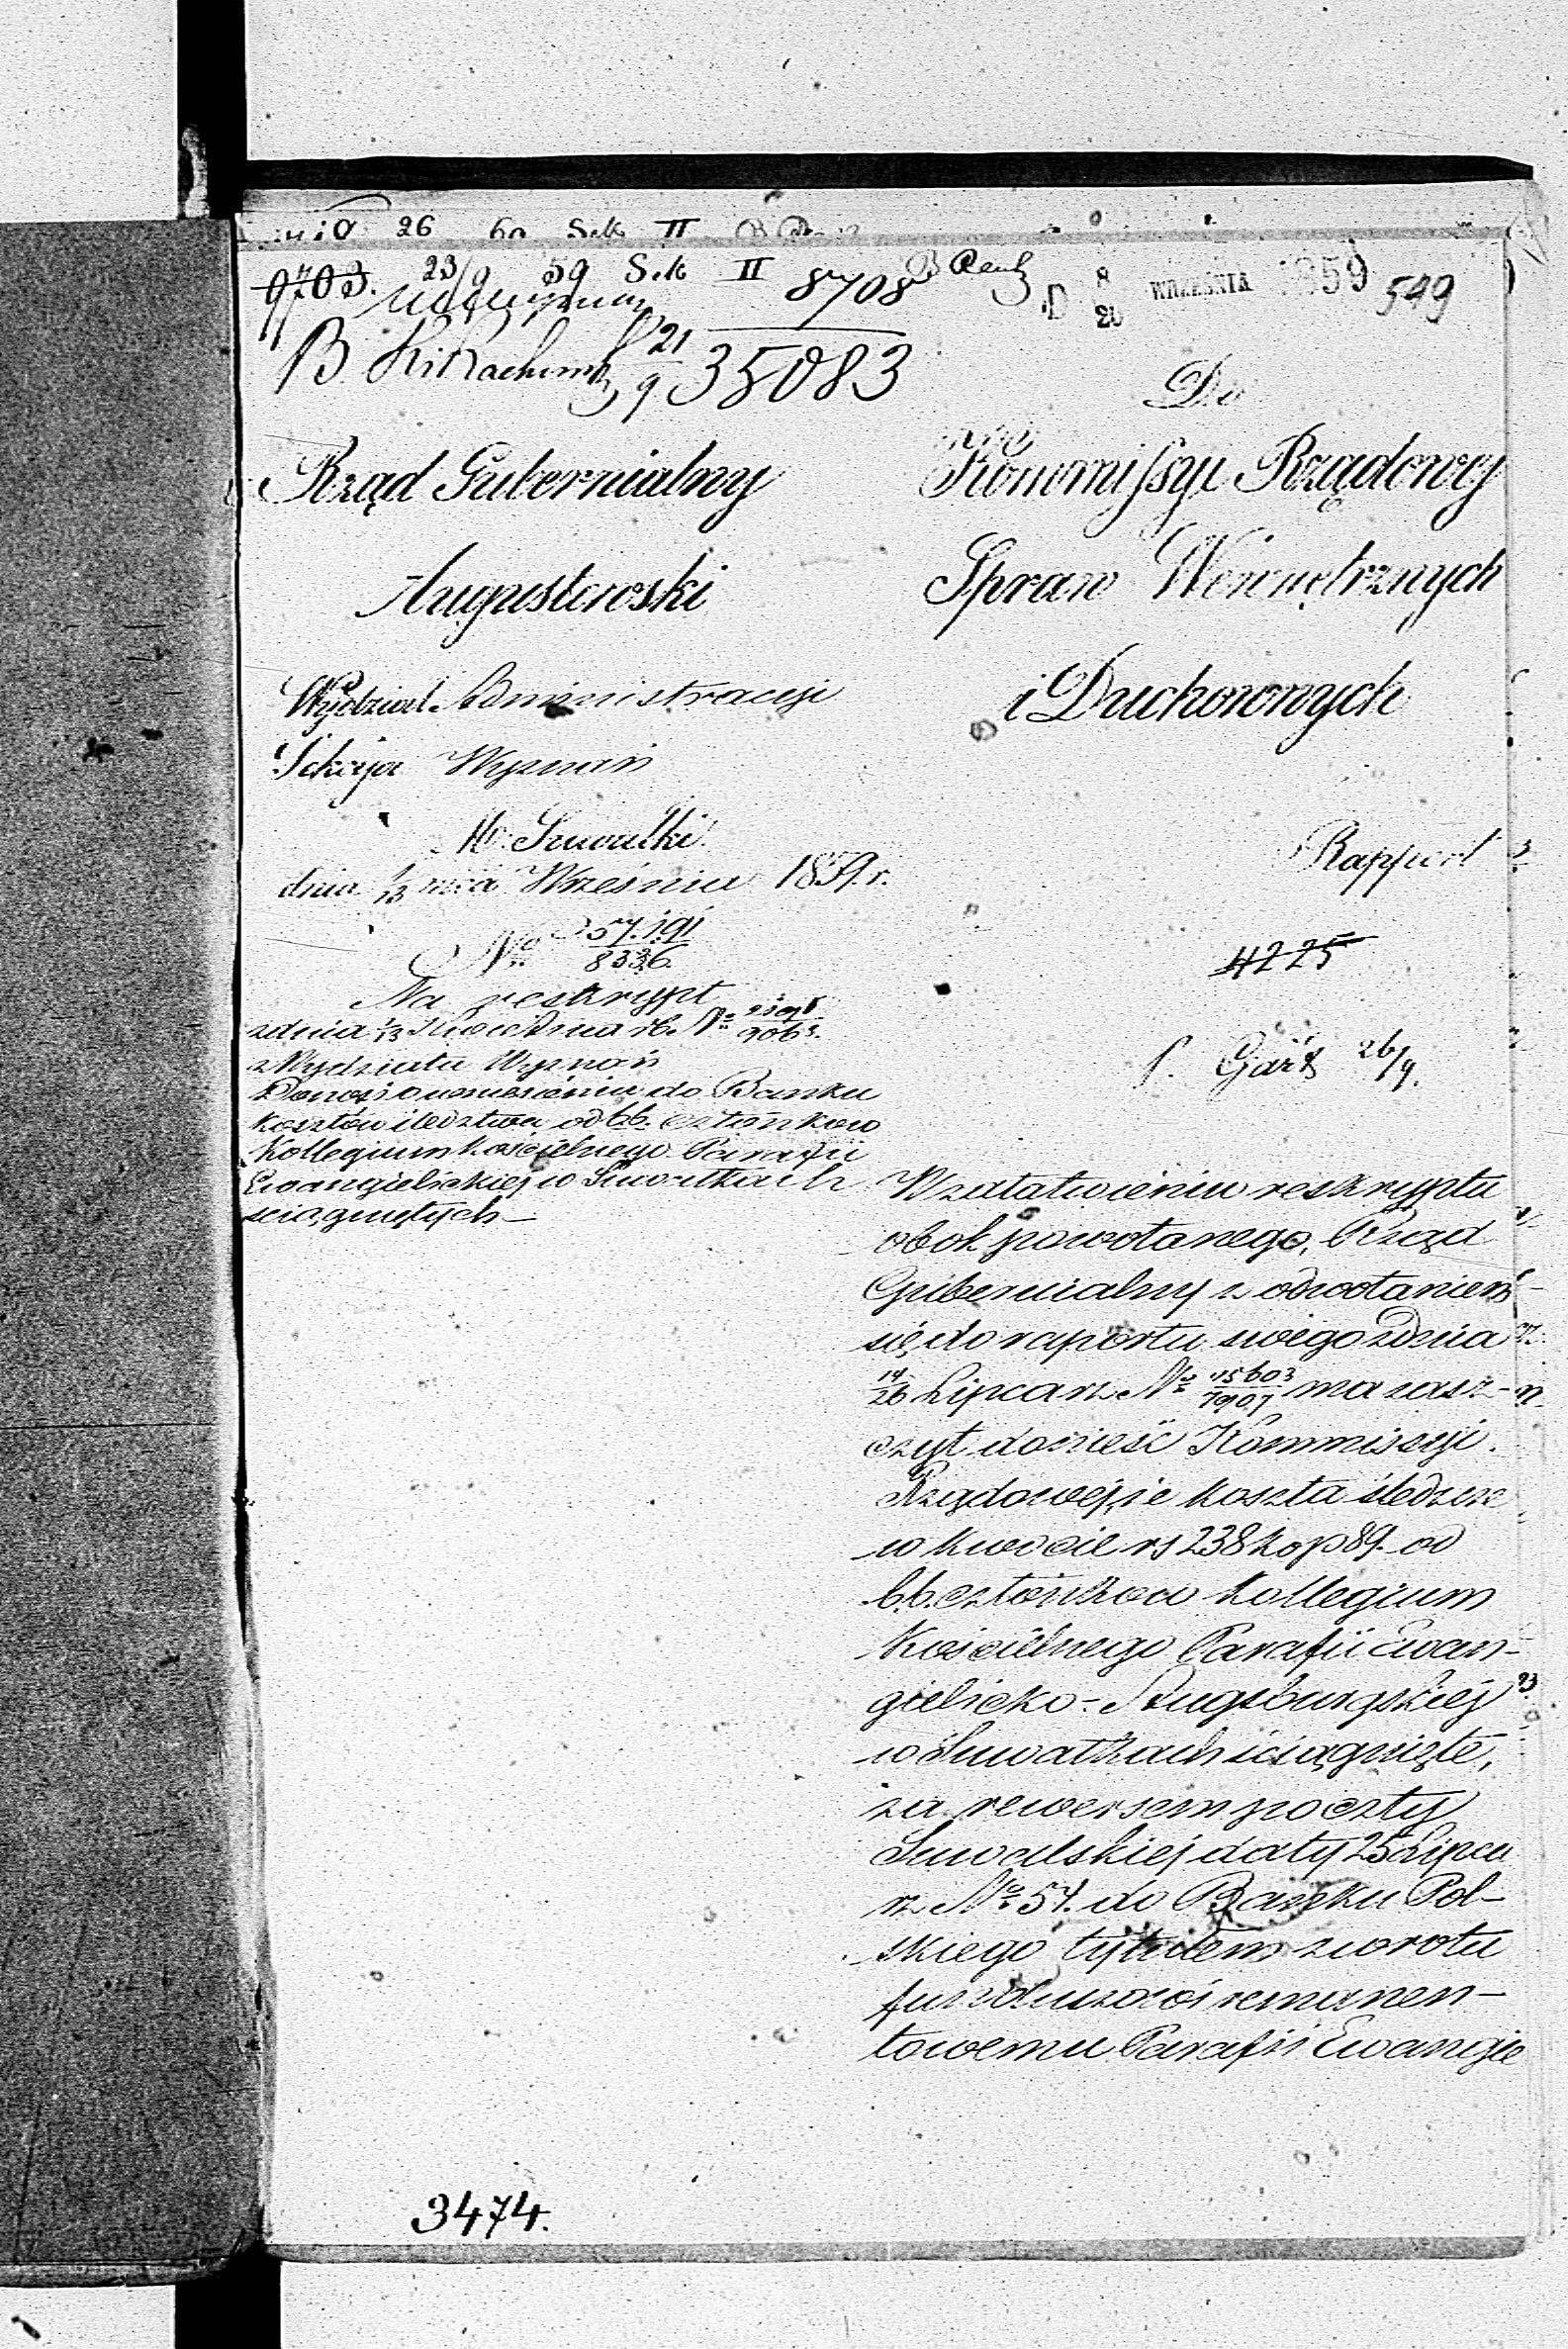 26 60 Sek II
9703. 23/9 59 Sek II 8708
35083
21/9
D 8/20 WRZEŚNIA 1859 549
Rząd Gubernialny
Augustowski
Wydział Administracyi
Sekcya Wyznań
M. Suwałki
dnia 1/13 mca Września 1859. r.
No 57.191/8336.
Na reskrypt
z dnia 1/13 Kwietnia rb. No
z Wydziału Wyznań
Donosi o wniesieniu do Banku
kosztów śledztwa od bb. członków
Kollegium Kościelnego Parafii
Ewangielickiej w Suwałkach
ściągniętych —
Do
Kommissyi Rządowej
Spraw Wewnętrznych
i Duchownych
Rapport
4225
26/9.
W załatwieniu reskryptu
obok powołanego, Rząd
Gubernialny z odwołaniem
się do raportu swego z dnia
14/26 Lipca rz. No 15603/7907 ma zasz-
czyt donieść Kommissyi
Rządowej, że koszta śledcze
w kwocie rs 238 kop 89. od
b.b. członków Kollegium
Kościelnego Parafii Ewan-
gielicko-Augsburgskiej
w Suwałkach ściągnięte,
za rewersem poczty
Suwalskiej daty 25 Lipca
rz. No 54. do Banku Pol-
skiego tytułem zwrotu
funduszowi remanen-
towemu Parafii Ewangie
3474.